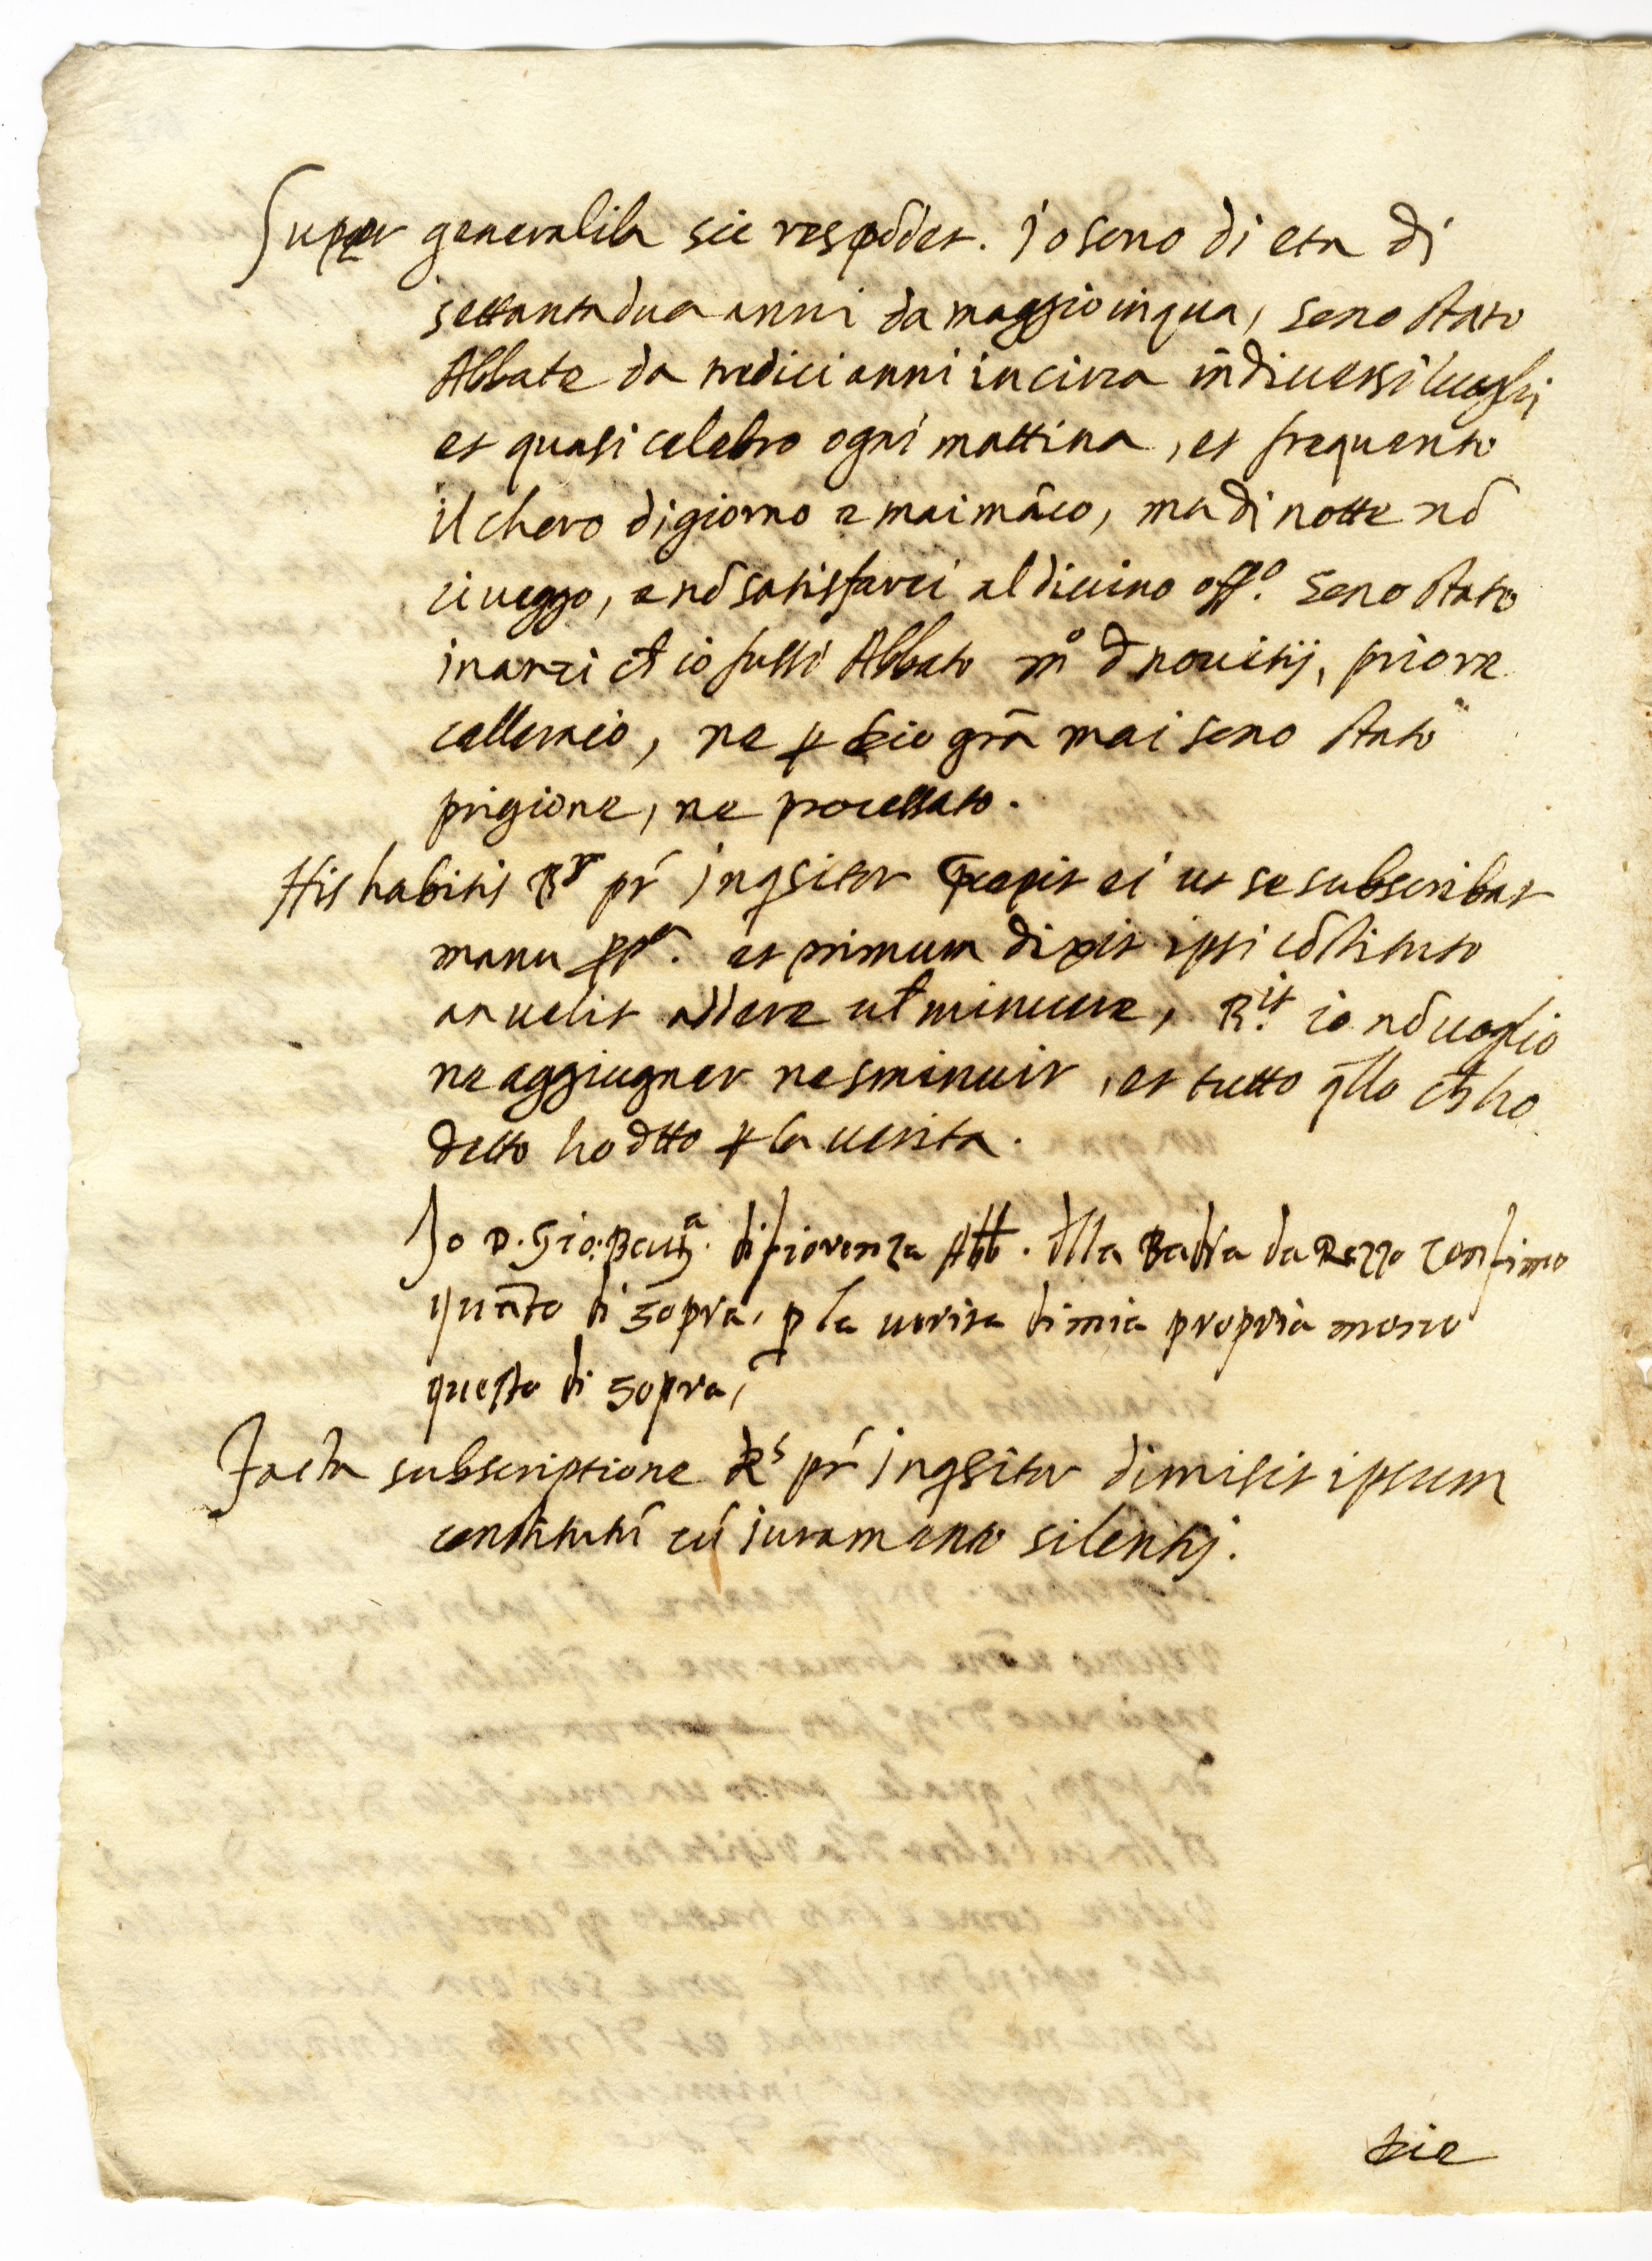 Super generalib₉ sic respōdet. Jo sono di eta di
settantadua anni da maggio in qua, sono stato
Abbate da tredici anni in circa in diuersi luoghi
et quasi celebro ogni mattina, et frequento
il choro di giorno e mai mãco, ma di notte nõ
ci ueggo, e nõ satisfarei al diuino off.º sono stato
inanzi ch̃ io fussi Abbate mº d nouitij, priore
cellerario, ne ꝑ Dio grã mai sono stato
prigione, ne processato.
His habitis Rr pr̃ Inqsitor precepit ei ut se subscribat
manu ppa. et primum dixit ipsi cõstituto
an uelit addere ul̃ minuere, R.it io nõ uoglio
ne aggiugner ne sminuir, et tutto q̃llo ch̃ ho
detto ho dtto ꝑ la uerita.
Jo D. Gio: Batta. di fiorenza Abb. dlla Badia da Rezzo confirmo
quãto di sopra, ꝑ la uerita di mia propria mano
questo di sopra,
Facta subscriptione Rs pr̃ Inqsitor dimisit ipsum
constitutũ cũ iuramento silentij.
Die